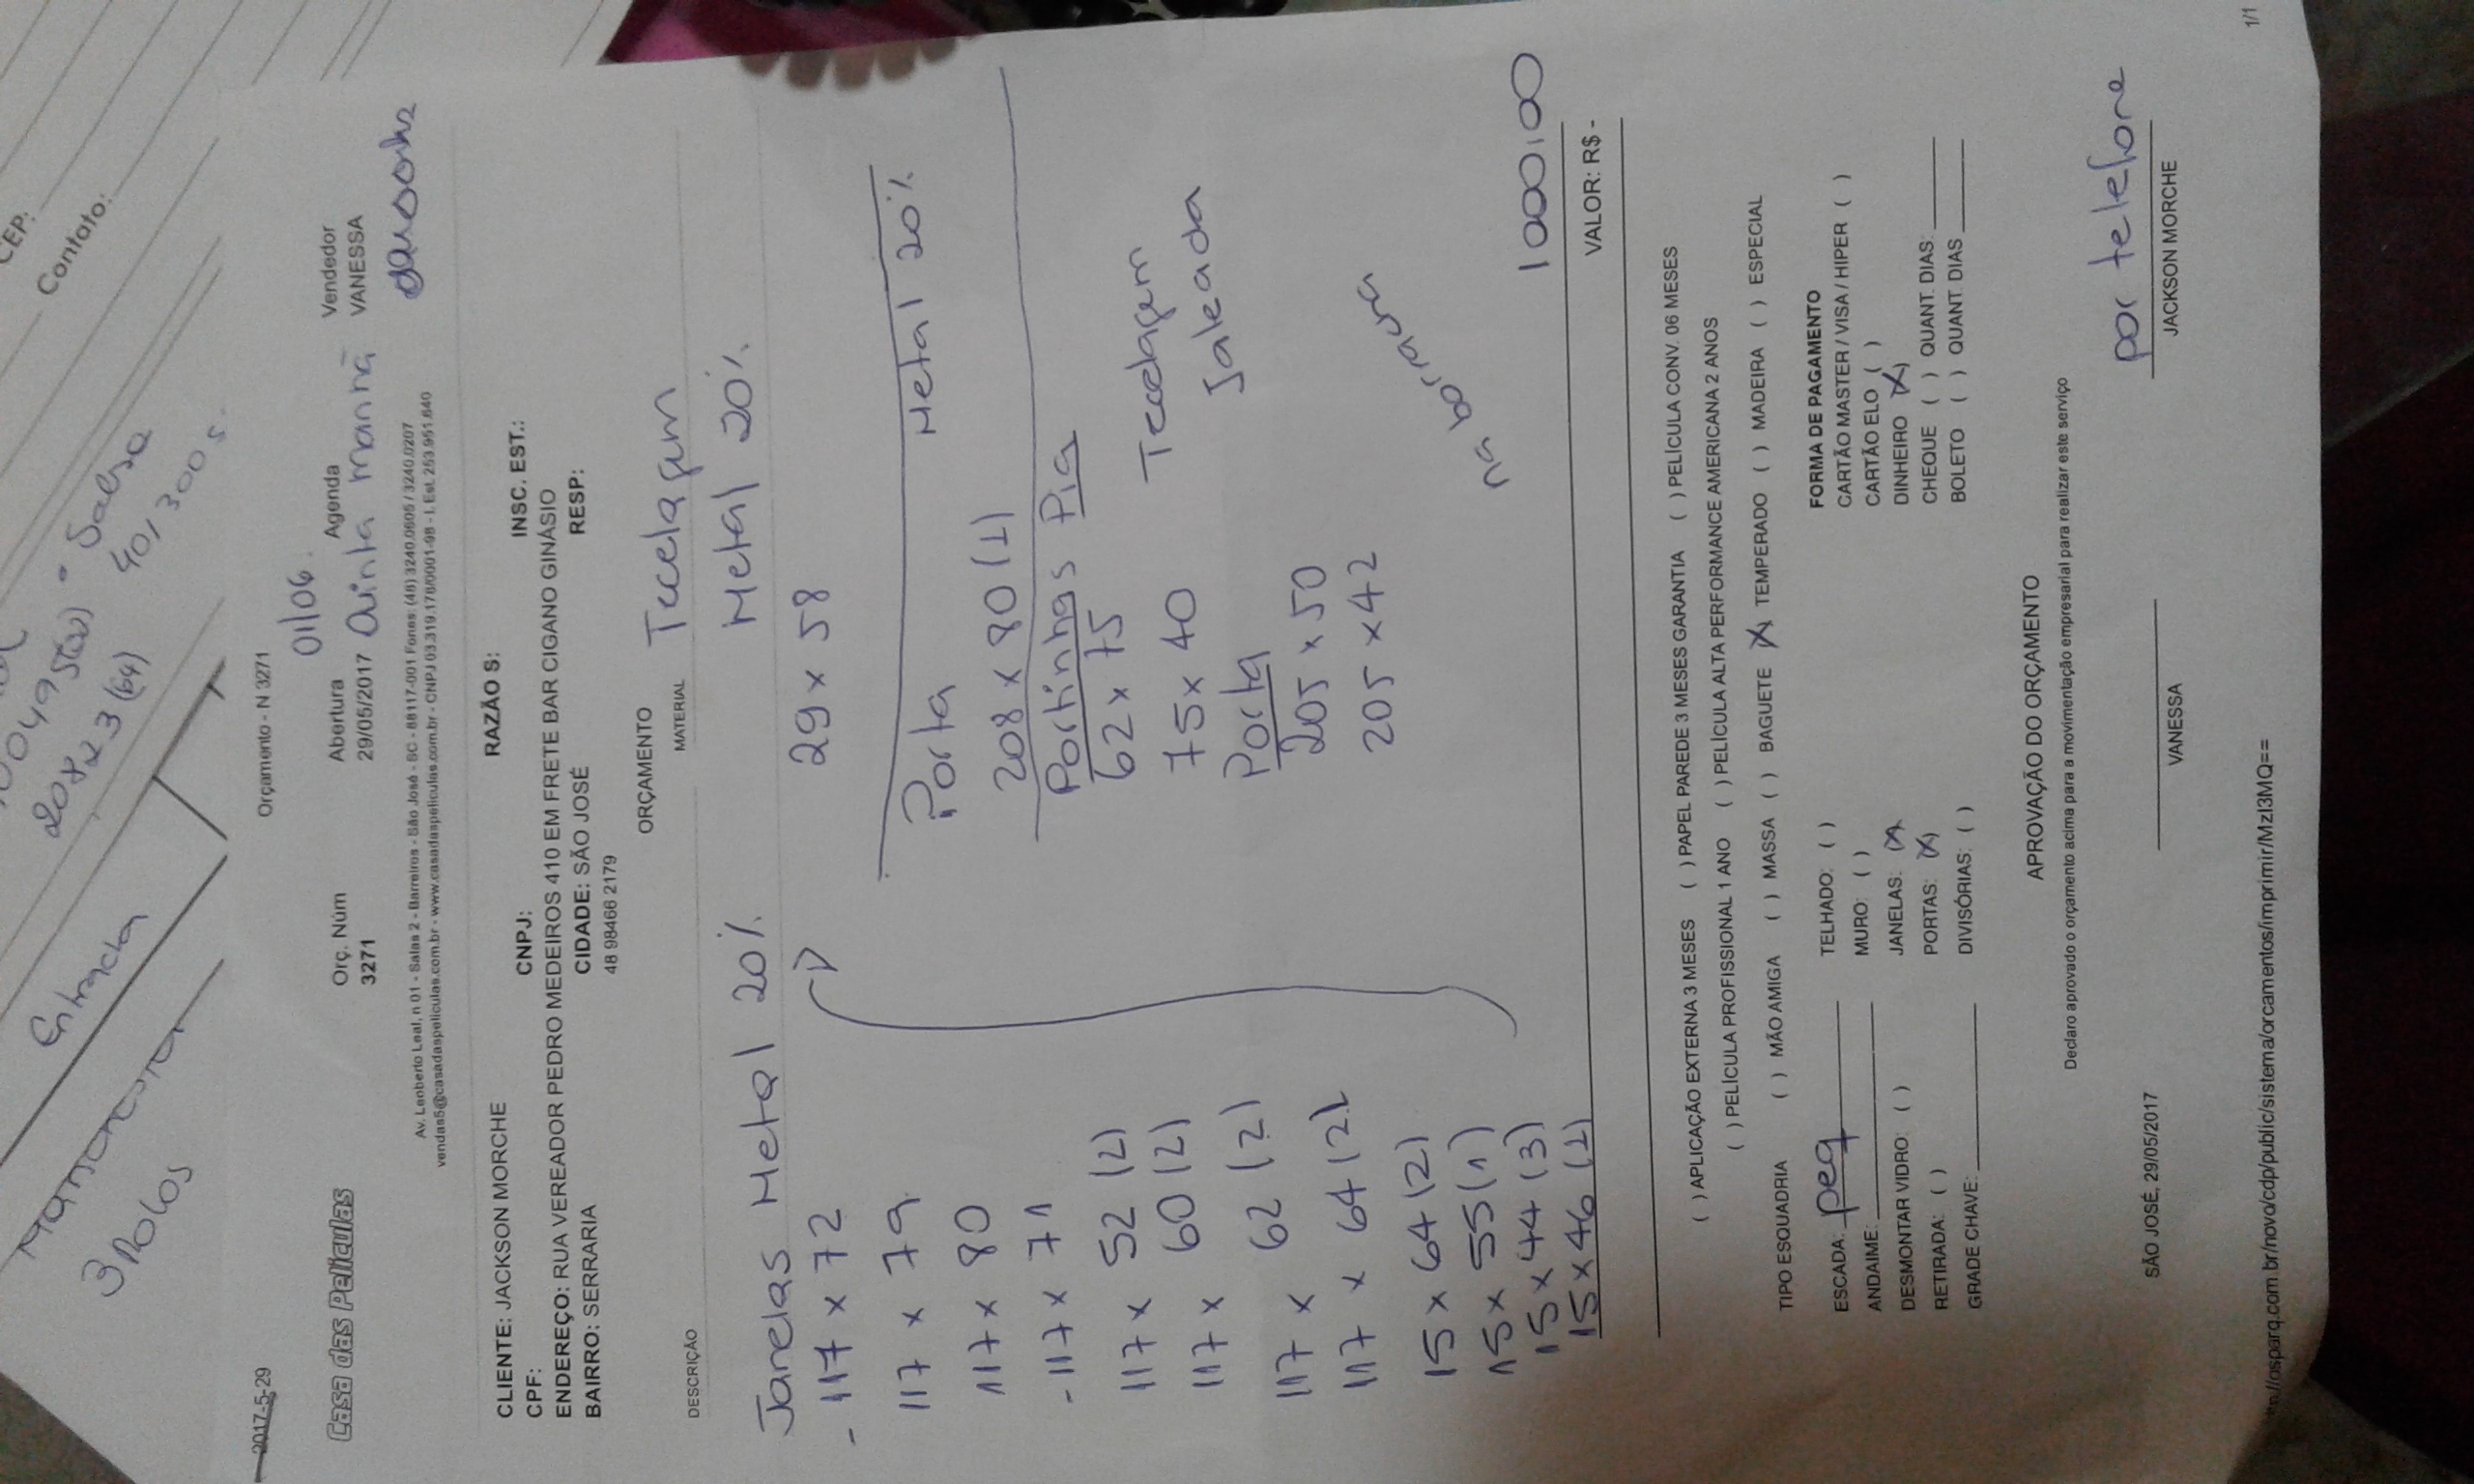 CEP:
Contato:
Salsa
40/300
20x23(64)
Entrada
3 Rolos
2017-5-29
Orçamento - N 3271
01/06
Casa das Películas
Orç. Núm
3271
Abertura
29/05/2017
Agenda
Quinta manhã
Vendedor
VANESSA
Av. Leoberto Leal, n 01 - Salas 2 - Barreiros - São José - SC - 88117-001 Fones: (48) 3240.0605 / 3240.0207
vendas5@casadaspeliculas.com.br - www.casadaspeliculas.com.br - CNPJ 03.319.178/0001-98 - I. Est. 253.951.640
CLIENTE: JACKSON MORCHE RAZÃO S:
CPF: CNPJ: INSC. EST.:
ENDEREÇO: RUA VEREADOR PEDRO MEDEIROS 410 EM FRETE BAR CIGANO GINÁSIO
BAIRRO: SERRARIA CIDADE: SÃO JOSÉ RESP:
48 98466 2179
ORÇAMENTO
DESCRIÇÃO MATERIAL Tecelagem
Janelas Metal 20% Metal 20%
- 117 x 72
117 x 79
117 x 80
- 117 x 71
117 x 52 (2)
117 x 60 (2)
117 x 62 (2)
117 x 64 (2)
15 x 64 (2)
15 x 55 (1)
15 x 44 (3)
15 x 46 (1)
29 x 58
Porta Metal 20%
208 x 80 (1)
Portinhas Pia
62 x 75 Tecelagem
75 x 40 Jateada
Porta
205 x 50
205 x 42
na borracha
1000,00
VALOR: R$ -
( ) APLICAÇÃO EXTERNA 3 MESES ( ) PAPEL PAREDE 3 MESES GARANTIA ( ) PELÍCULA CONV. 06 MESES
( ) PELÍCULA PROFISSIONAL 1 ANO ( ) PELÍCULA ALTA PERFORMANCE AMERICANA 2 ANOS
TIPO ESQUADRIA ( ) MÃO AMIGA ( ) MASSA ( ) BAGUETE (X) TEMPERADO ( ) MADEIRA ( ) ESPECIAL
ESCADA: peq
ANDAIME:
DESMONTAR VIDRO: ( )
RETIRADA: ( )
GRADE CHAVE:
TELHADO: ( )
MURO: ( )
JANELAS: (X)
PORTAS: (X)
DIVISÓRIAS: ( )
FORMA DE PAGAMENTO
CARTÃO MASTER / VISA / HIPER ( )
CARTÃO ELO ( )
DINHEIRO (X)
CHEQUE ( ) QUANT. DIAS:
BOLETO ( ) QUANT DIAS
APROVAÇÃO DO ORÇAMENTO
Declaro aprovado o orçamento acima para a movimentação empresarial para realizar este serviço
por telefone
SÃO JOSÉ, 29/05/2017 VANESSA JACKSON MORCHE
//osparq.com.br/novo/cdp/public/sistema/orcamentos/imprimir/MzI3MQ== 1/1